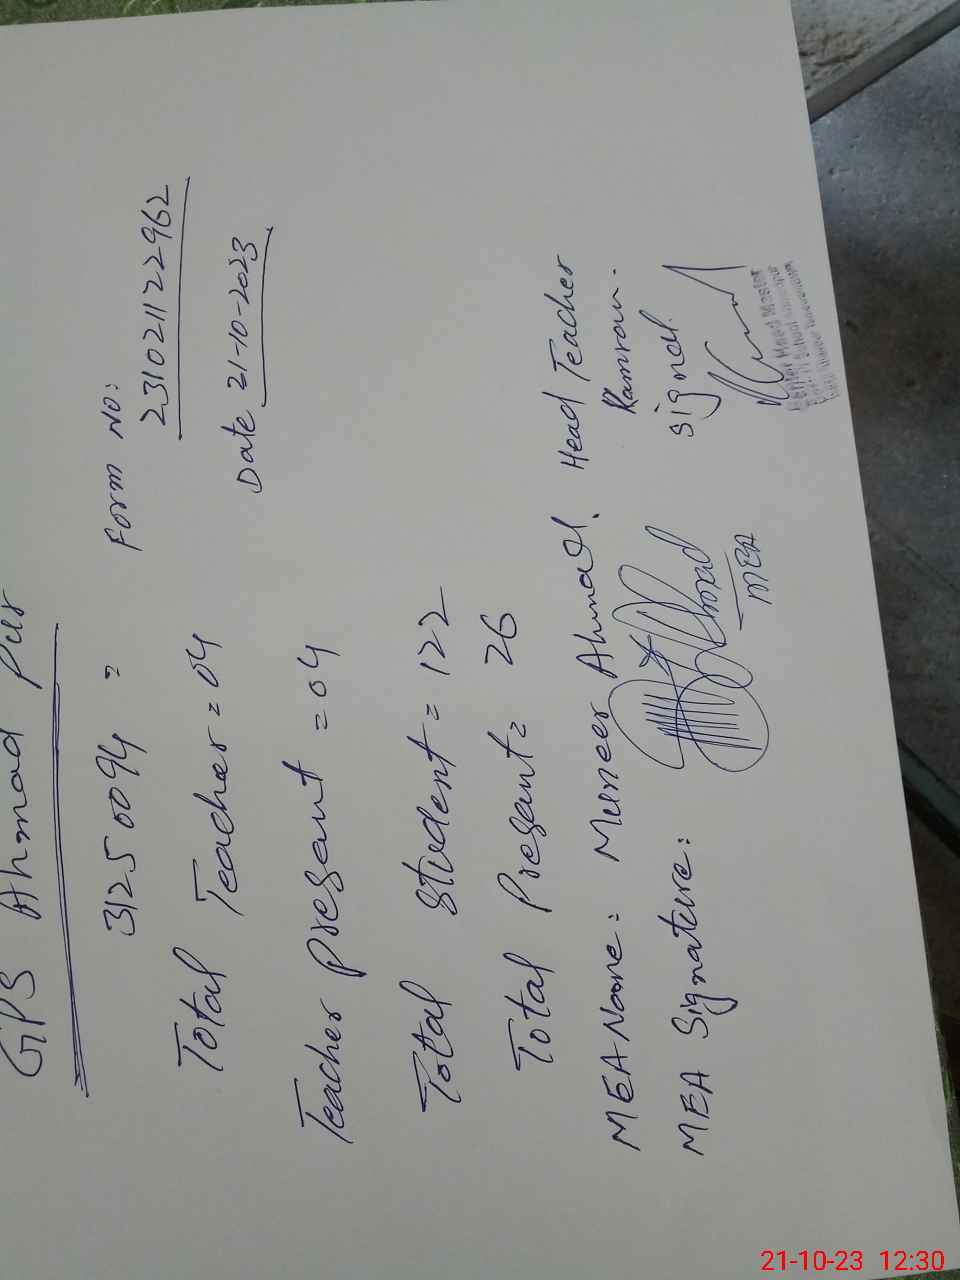 GPS Ahmad Pur
31250094 =
Form No:
231021122962
Total Teacher = 04
Date 21-10-2023
Teacher Present = 04
Total Student = 122
Total Present = 26
MEA Name: Muneer Ahmad.
Head Teacher
Kamran.
MEA Signature:
Signal.
MEA
Head Master
21-10-23 12:30